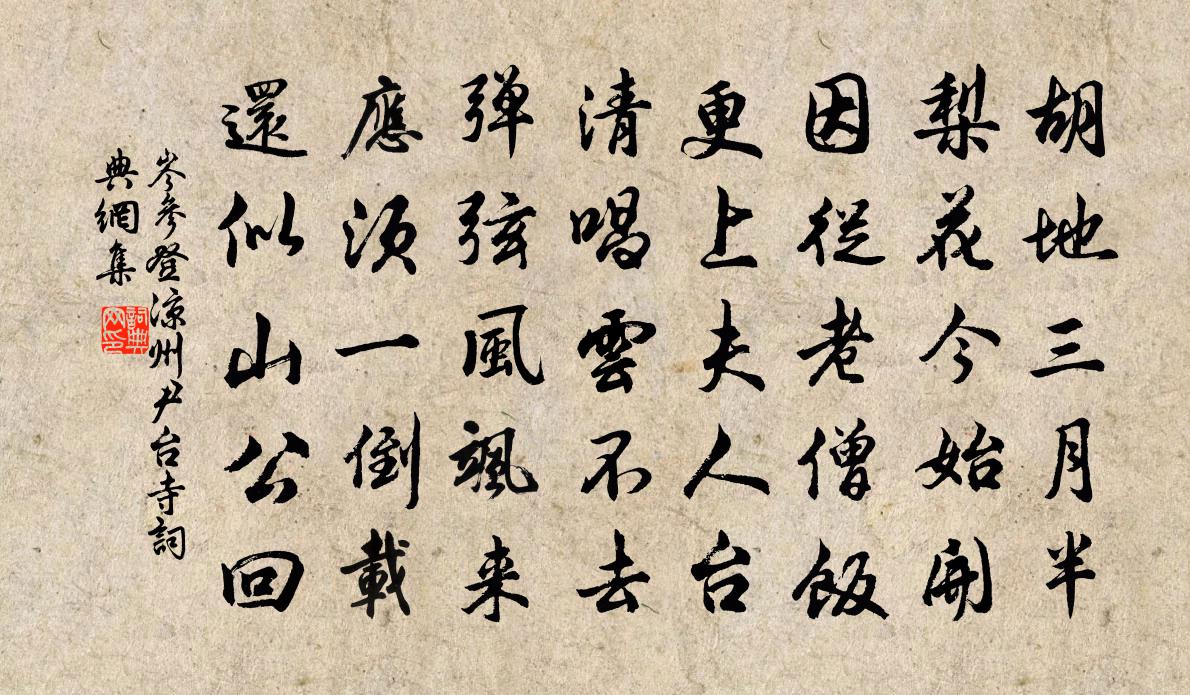 胡地三月半
梨花今始開
因從老僧飯
更上夫人台
清唱雲不去
弹弦風颯来
應須一倒載
還似山公回
岑參登涼州尹台寺詞
典網集
詞典
网印